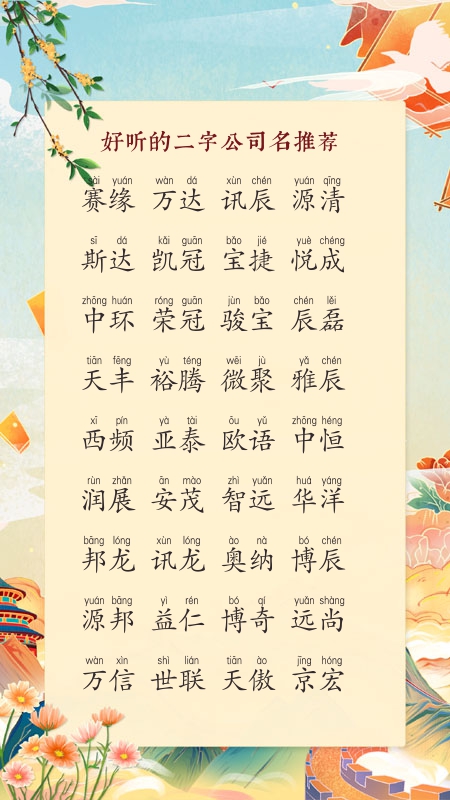 好听的二字公司名推荐
sài yuán wàn dá xùn chén yuán qīng
赛缘 万达 讯辰 源清
sī dá kǎi guān bǎo jié yuè chéng
斯达 凯冠 宝捷 悦成
zhōng huán róng guān jùn bǎo chén lěi
中环 荣冠 骏宝 辰磊
tiān fēng yù téng wēi jù yǎ chén
天丰 裕腾 微聚 雅辰
xī pín yà tài ōu yǔ zhōng héng
西频 亚泰 欧语 中恒
rùn zhǎn ān mào zhì yuǎn huá yáng
润展 安茂 智远 华洋
bāng lóng xùn lóng ào nà bó chén
邦龙 讯龙 奥纳 博辰
yuán bāng yì rén bó qí yuǎn shàng
源邦 益仁 博奇 远尚
wàn xìn shì lián tiān ào jīng hóng
万信 世联 天傲 京宏